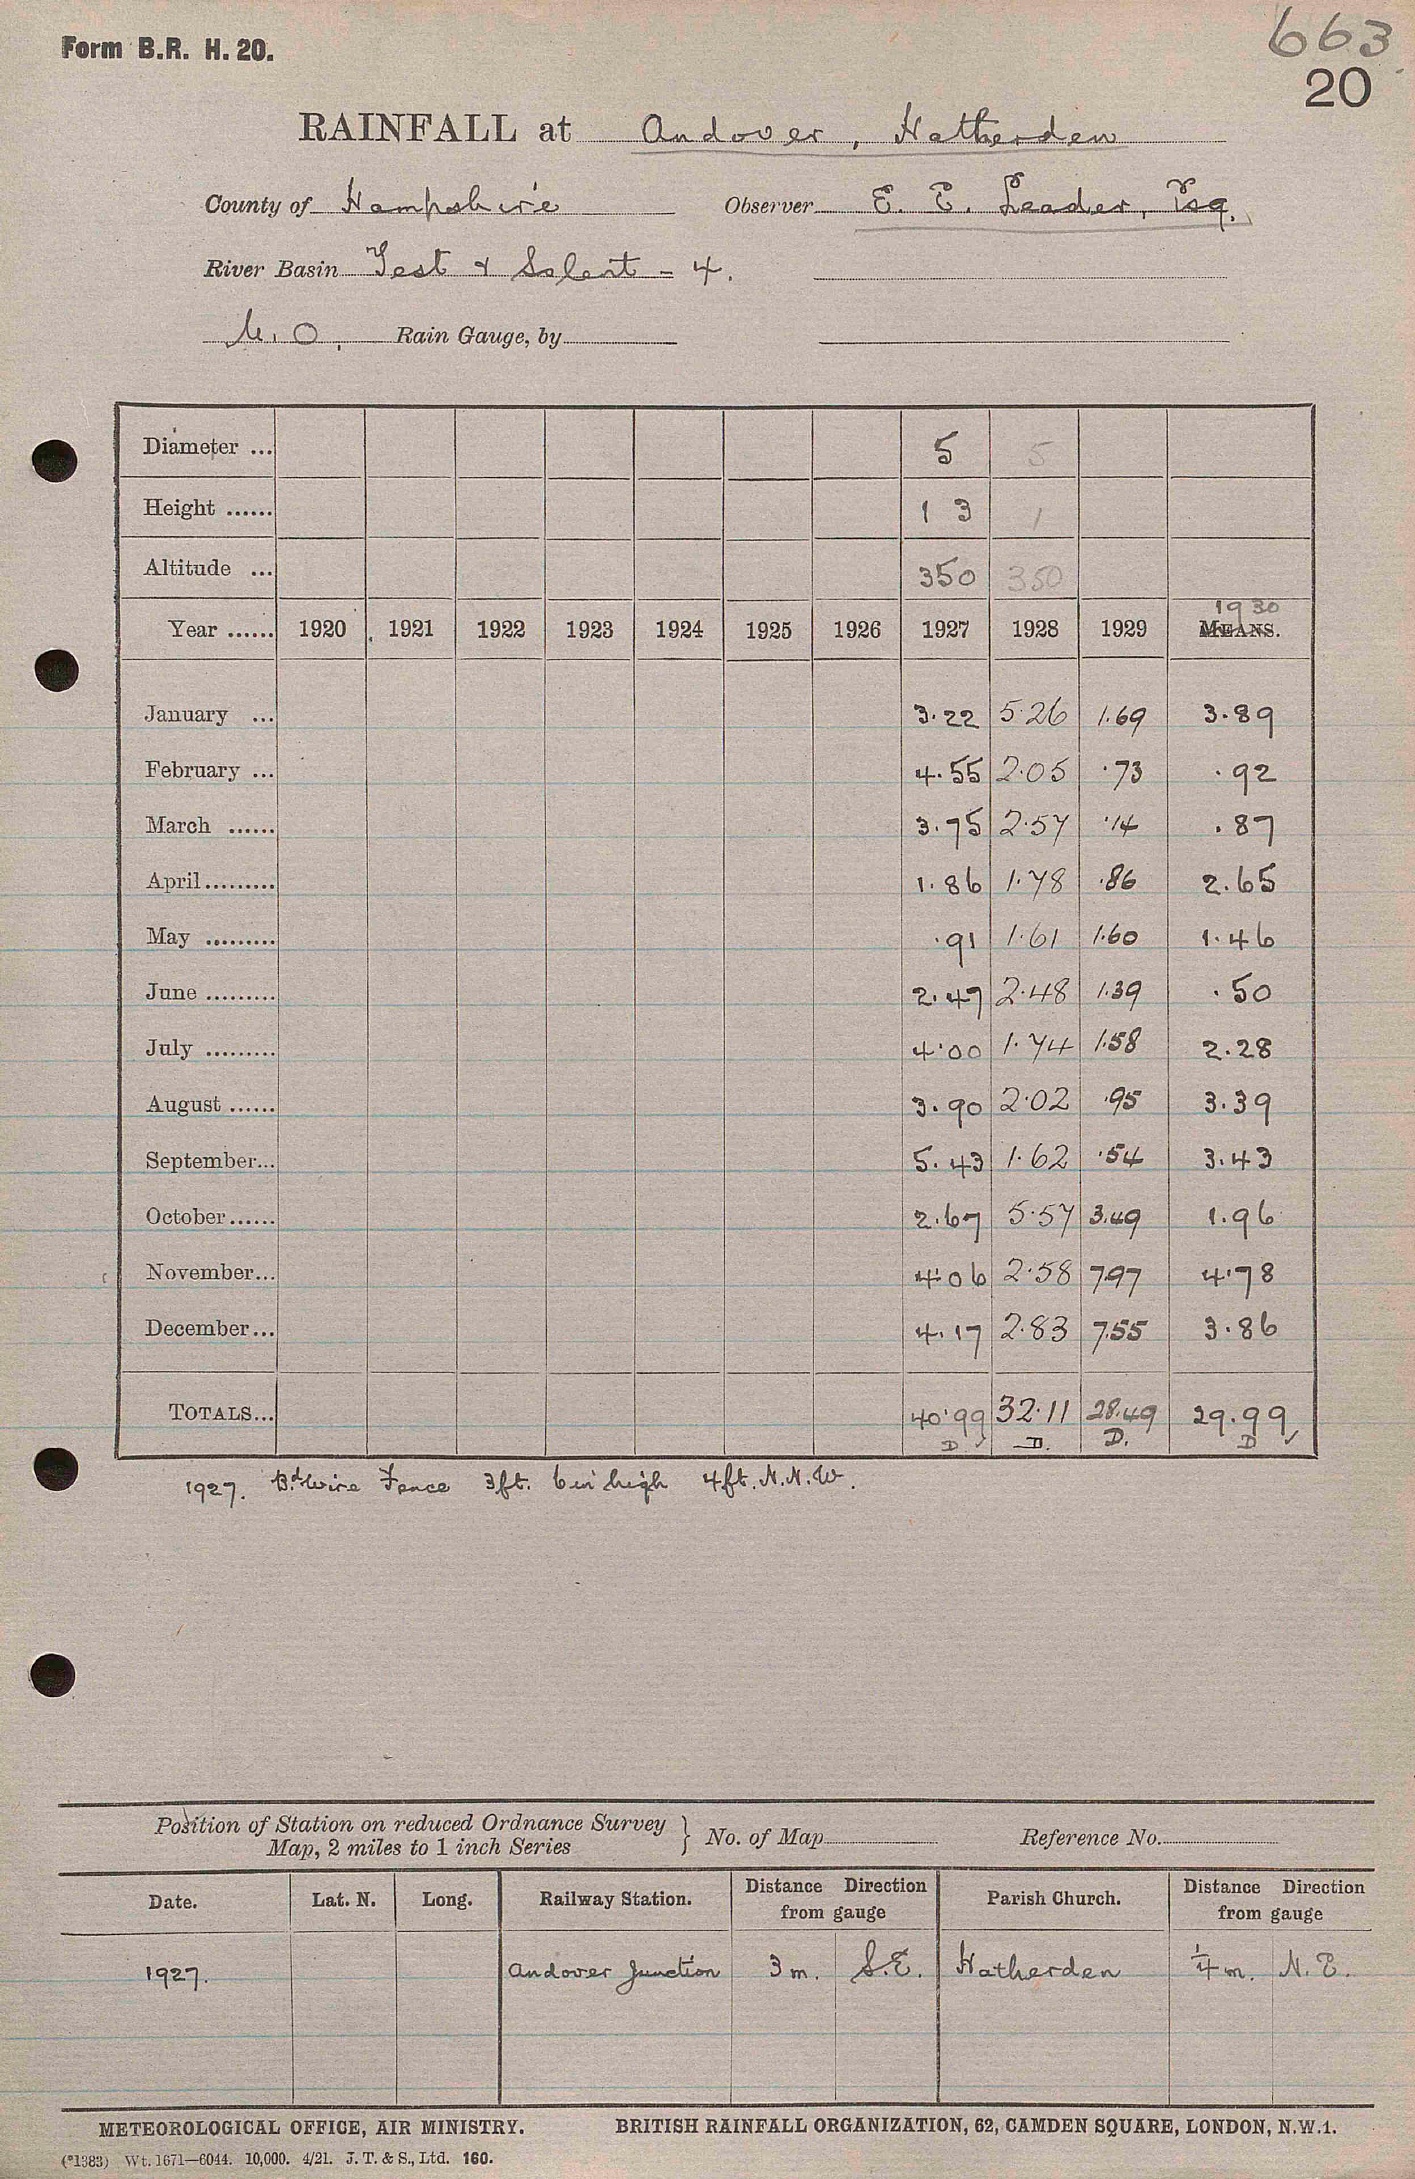 663
Form B.R. H. 20.
20
RAINFALL at Andover, Hatherden
County of Hampshire Observer E. E. Leader, Esq.
River Basin Test & Solent - 4.
M.O. Rain Gauge, by
Diameter ... 5 5
Height ...... 1 3 1
Altitude ... 350 350
1930
Year ...... 1920 1921 1922 1923 1924 1925 1926 1927 1928 1929 MEANS.
January ... 3.22 5.26 1.69 3.89
February ... 4.55 2.05 .73 .92
March ...... 3.75 2.57 .14 .87
April......... 1.86 1.78 .86 2.65
May ......... .91 1.61 1.60 1.46
June ......... 2.47 2.48 1.39 .50
July ......... 4.00 1.74 1.58 2.28
August ...... 3.90 2.02 .95 3.39
September... 5.43 1.62 .54 3.43
October...... 2.67 5.57 3.49 1.96
November... 4.06 2.58 7.97 4.78
December... 4.17 2.83 7.55 3.86
TOTALS... 40.99 32.11 28.49 29.99
D ✓ D. D. D ✓
1927. Bd Wire Fence 3ft. 6in high 4ft. N.N.W.
Position of Station on reduced Ordnance Survey
Map, 2 miles to 1 inch Series } No. of Map Reference No.
Date. Lat. N. Long. Railway Station. Distance Direction from gauge Parish Church. Distance Direction from gauge
1927. Andover Junction 3 m. S.E. Hatherden ¼ m. N.E.
METEOROLOGICAL OFFICE, AIR MINISTRY. BRITISH RAINFALL ORGANIZATION, 62, CAMDEN SQUARE, LONDON, N.W.1.
(*1383) Wt. 1671—6044. 10,000. 4/21. J. T. & S., Ltd. 160.